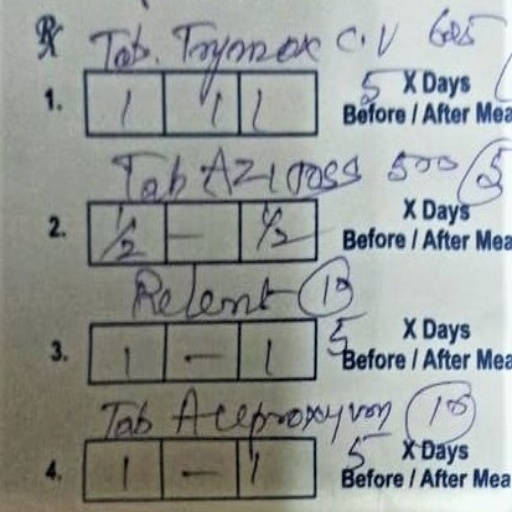 Rx Tab. Trymox C.V 625
1. 1 1 1 5 X Days
Before / After Mea
Tab AZI 500 5
2. 1/2 — 1/2 X Days
Before / After Mea
Relent 10
3. 1 — 1 5 X Days
Before / After Mea
Tab 10
4. 1 — 1 5 X Days
Before / After Mea